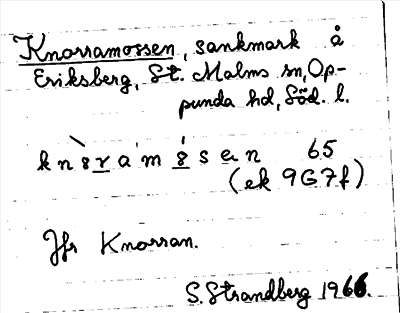 Knorramossen, sankmark å
Eriksberg, St. Malms sn, Op-
punda hd, Söd. l.
65
(ek 9G7f)
Jfr Knorran.
S. Strandberg 1966.